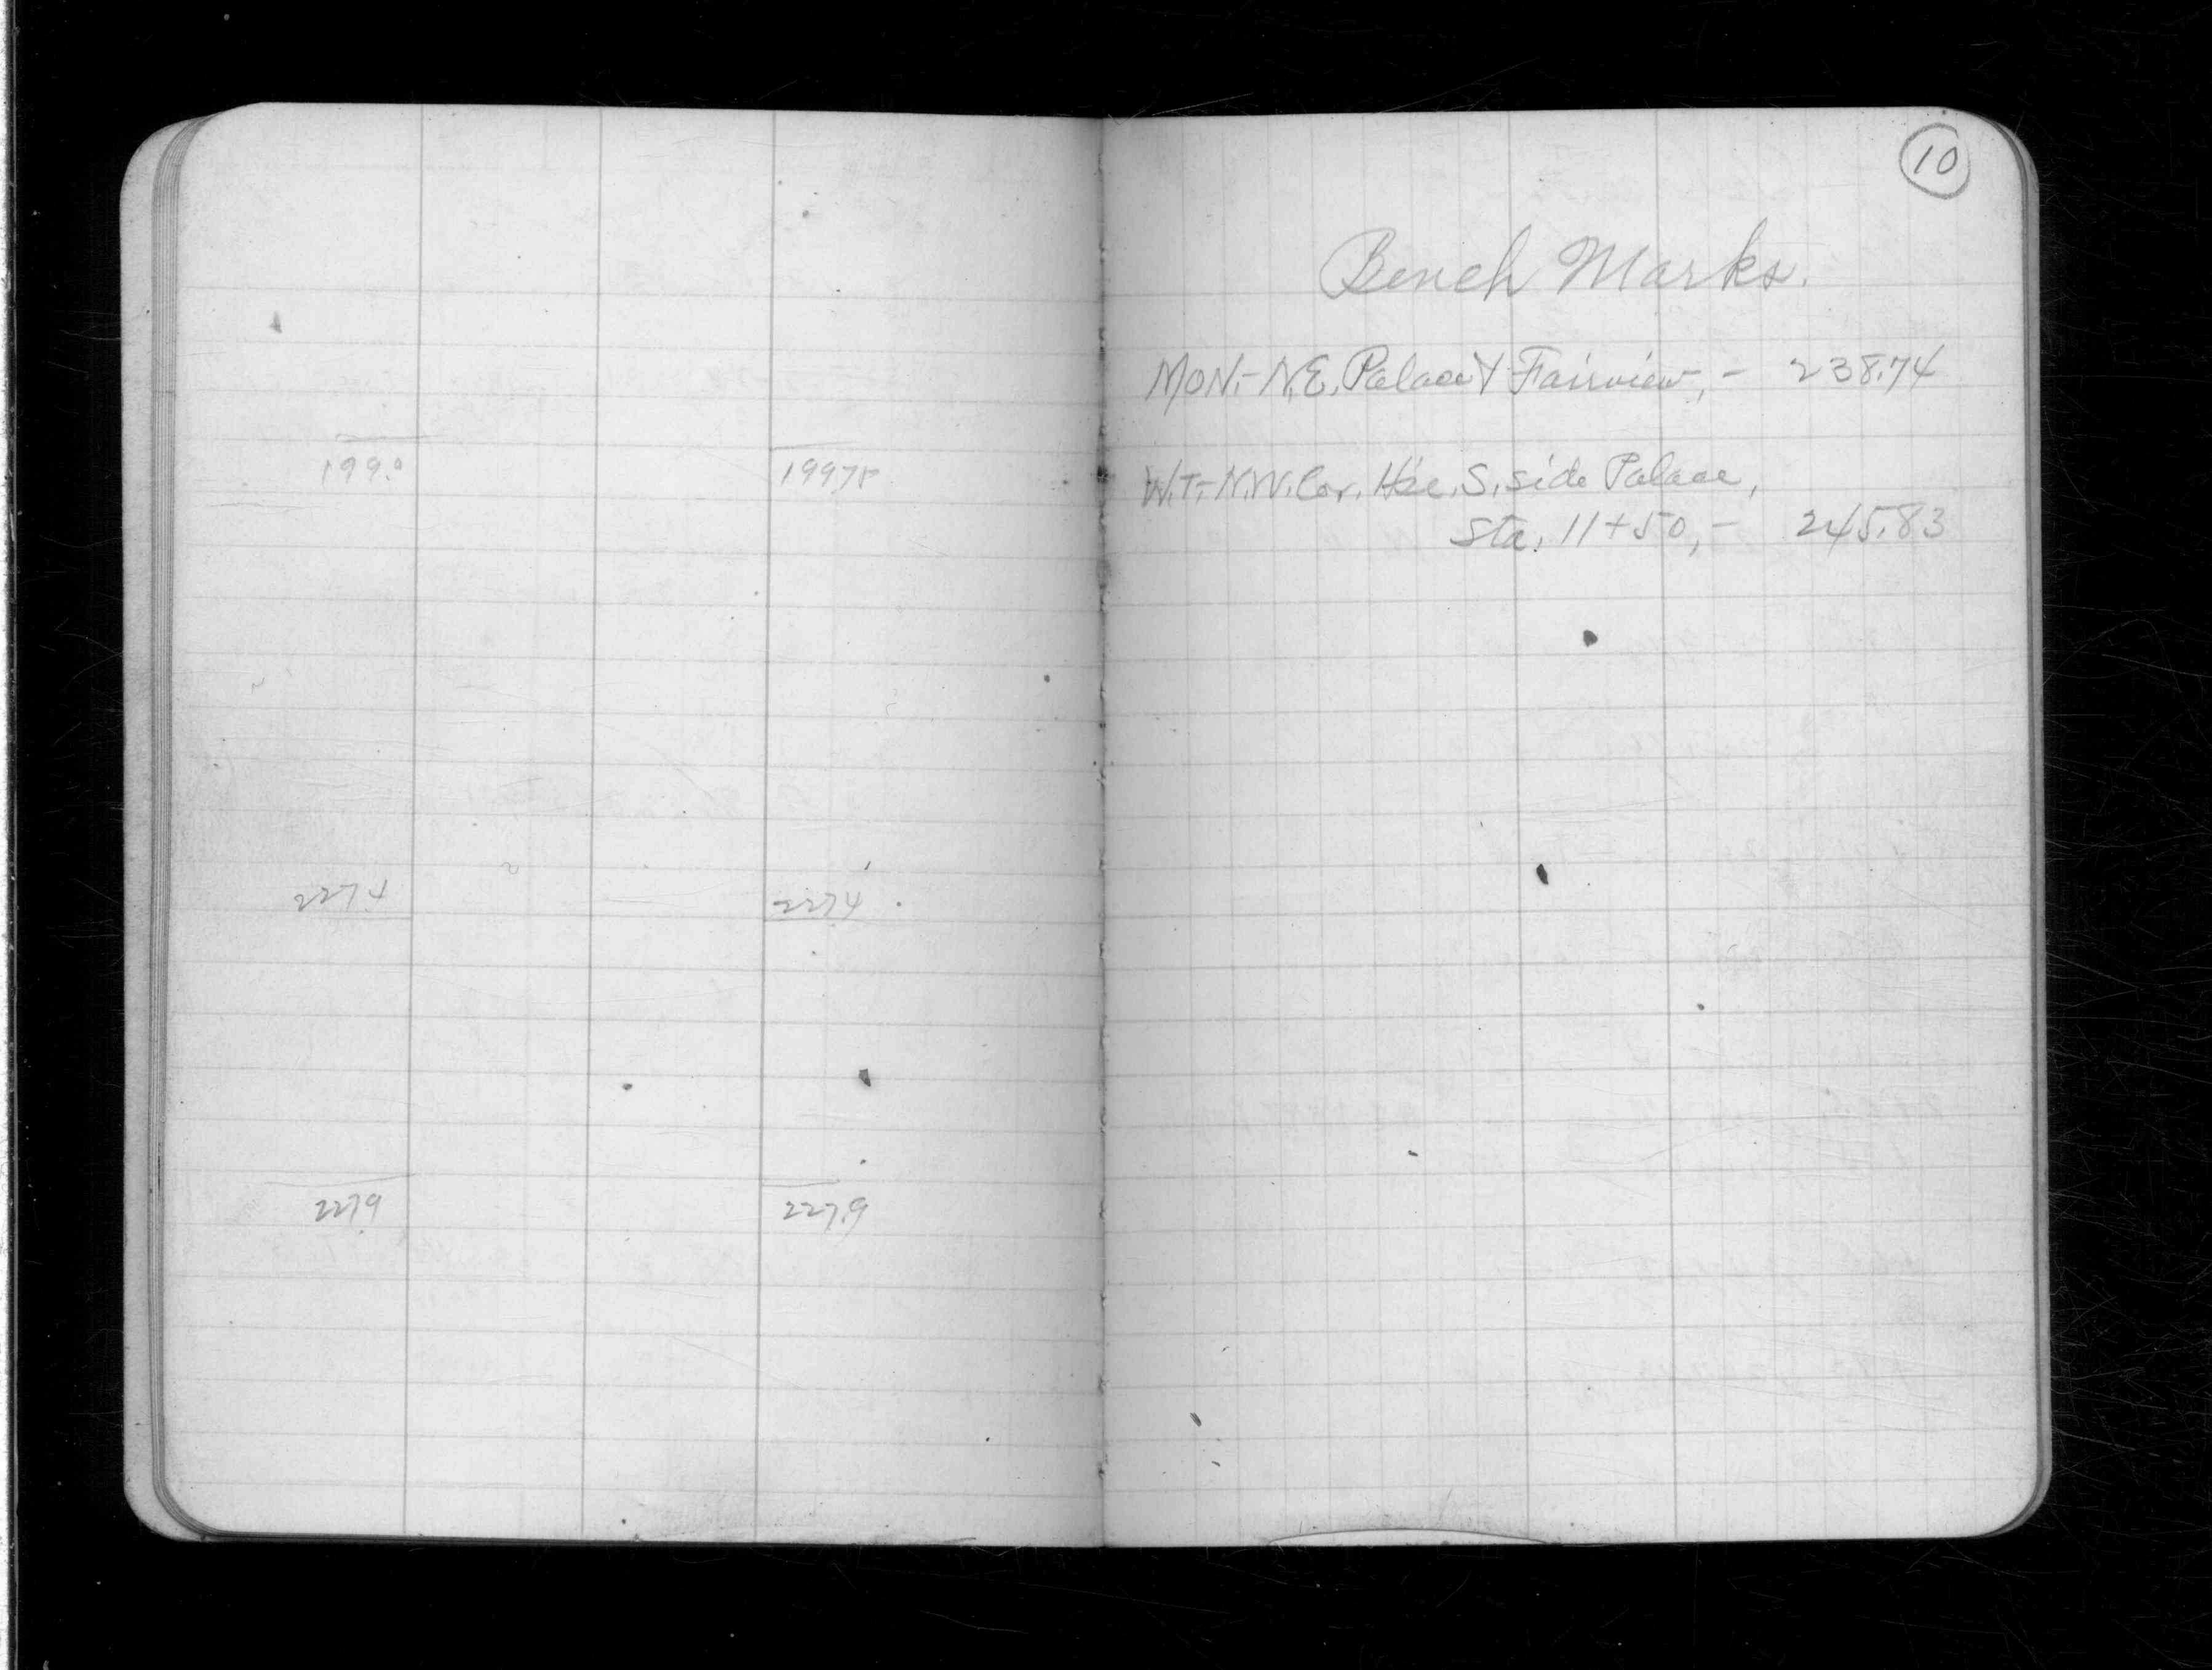 199.0
2274
2274
2279
227.9
10
Bench Marks.
MON.- N.E. Palace & Fairview, - 238.74
W.T.- N.W. Cor. Hse. S. side Palace,
Sta. 11+50, - 245.83